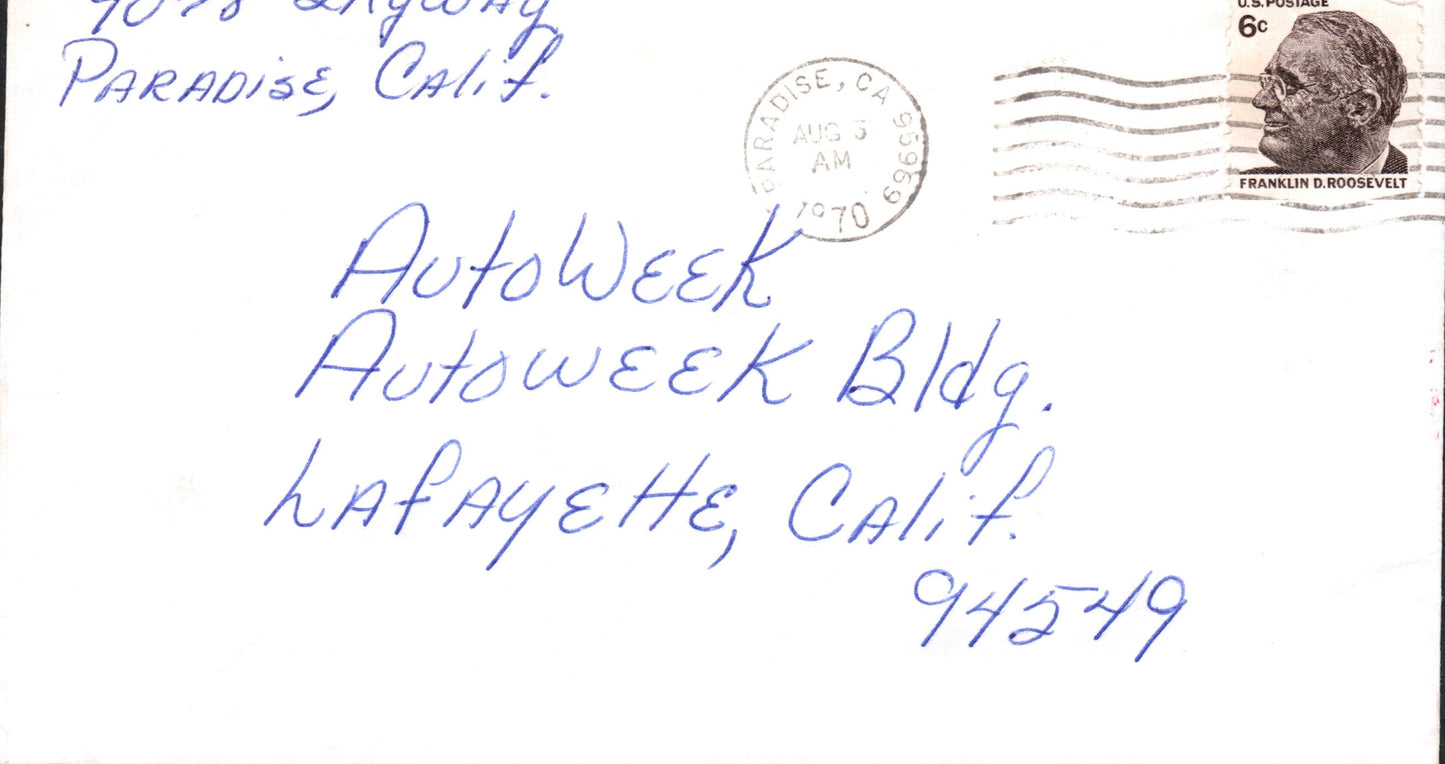 Skyway
Paradise, Calif.
PARADISE, CA 95969
AUG 3
AM
1970
U.S. POSTAGE
6c
FRANKLIN D. ROOSEVELT
AutoWeek
Autoweek Bldg.
Lafayette, Calif.
94549